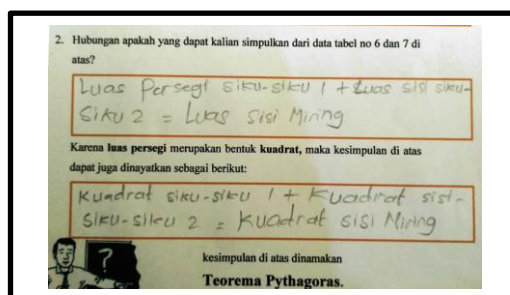 2. Hubungan apakah yang dapat kalian simpulkan dari data tabel no 6 dan 7 di
atas?
Luas Persegi siku-siku 1 + Luas sisi siku-
Siku 2 = Luas Sisi Miring
Karena luas persegi merupakan bentuk kuadrat, maka kesimpulan di atas
dapat juga dinayatkan sebagai berikut:
Kuadrat siku-siku 1 + Kuadrat sisi-
siku-siku 2 = Kuadrat sisi Miring
?
kesimpulan di atas dinamakan
Teorema Pythagoras.